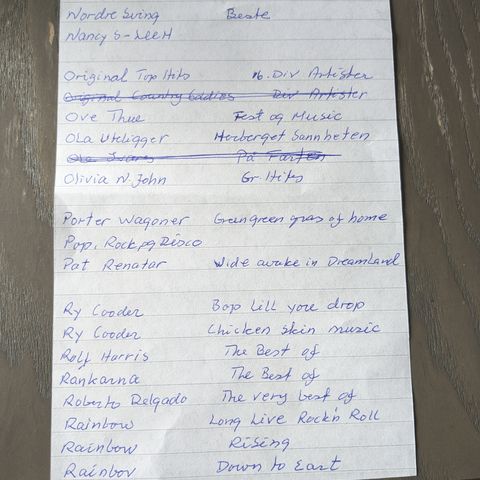 Nordre Sving Beste
Nancy S-LEEH
Original Top Hits 16. Div Artister
Original Country Ladies Div Artister
Ove Thue Fest og Music
OLa Uteligger Herberget Sannheten
Ola Svare På Farten
Olivia N. John Gr. Hits
Porter Wagoner Greengreen gras of home
Pop, Rock, og Disco
Pat Renatar Wide awake in Dreamland
Ry Cooder Bop till you drop
Ry Cooder Chicken Skin music
Rolf Harris The Best of
Rankarna The Best of
Roberto Delgado The very best of
Rainbow Long Live Rock'n Roll
Rainbow Rising
Rainbov Down to East